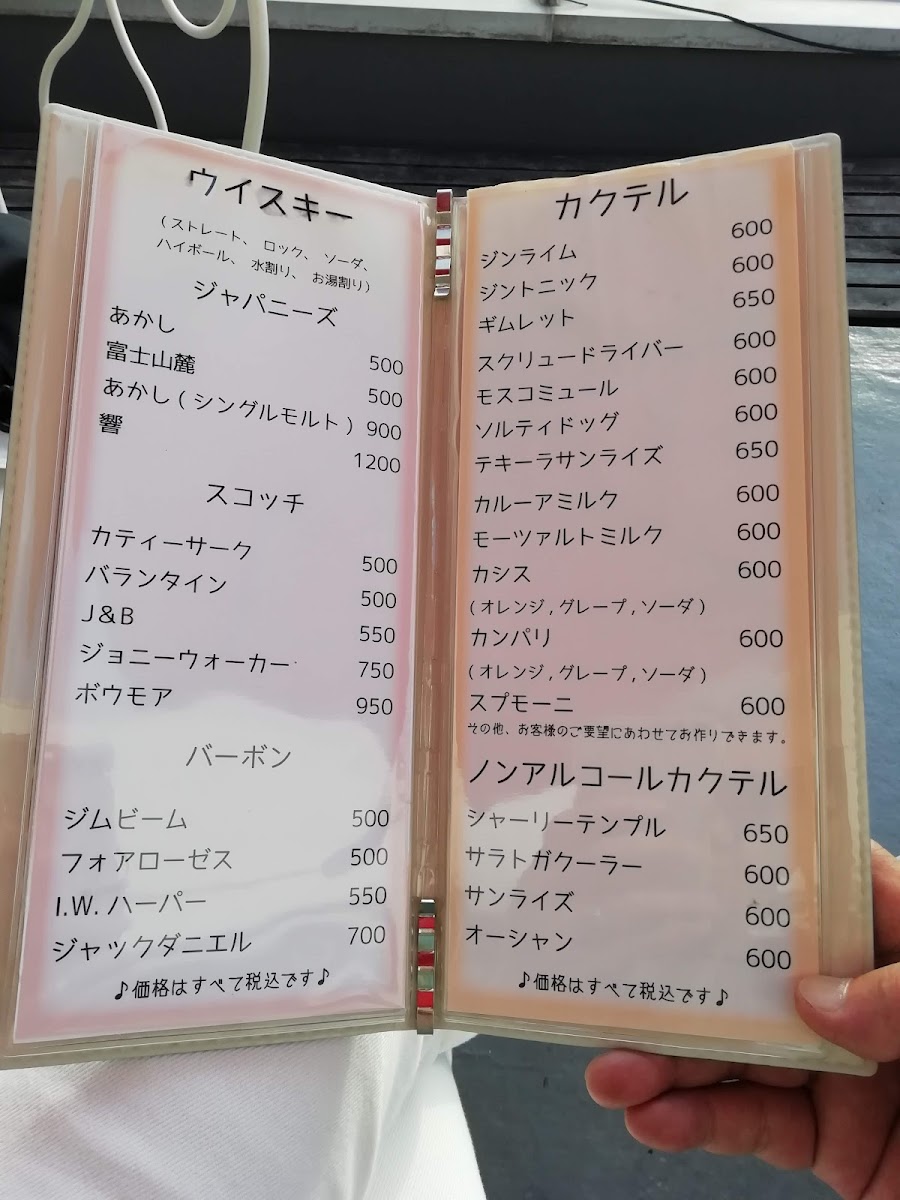 ウイスキー
(ストレート、 ロック、 ソーダ、
ハイボール、 水割り、 お湯割り)
ジャパニーズ
あかし 500
富士山麓 500
あかし ( シングルモルト ) 900
響 1200
スコッチ
カティーサーク 500
バランタイン 500
J&B 550
ジョニーウォーカー 750
ボウモア 950
バーボン
ジムビーム 500
フォアローゼス 500
I.W. ハーパー 550
ジャックダニエル 700
♪価格はすべて税込です♪
カクテル
ジンライム 600
ジントニック 600
ギムレット 650
スクリュードライバー 600
モスコミュール 600
ソルティドッグ 600
テキーラサンライズ 650
カルーアミルク 600
モーツァルトミルク 600
カシス 600
( オレンジ , グレープ , ソーダ )
カンパリ 600
( オレンジ , グレープ , ソーダ )
スプモーニ 600
その他、お客様のご要望にあわせてお作りできます。
ノンアルコールカクテル
シャーリーテンプル 650
サラトガクーラー 600
サンライズ 600
オーシャン 600
♪価格はすべて税込です♪